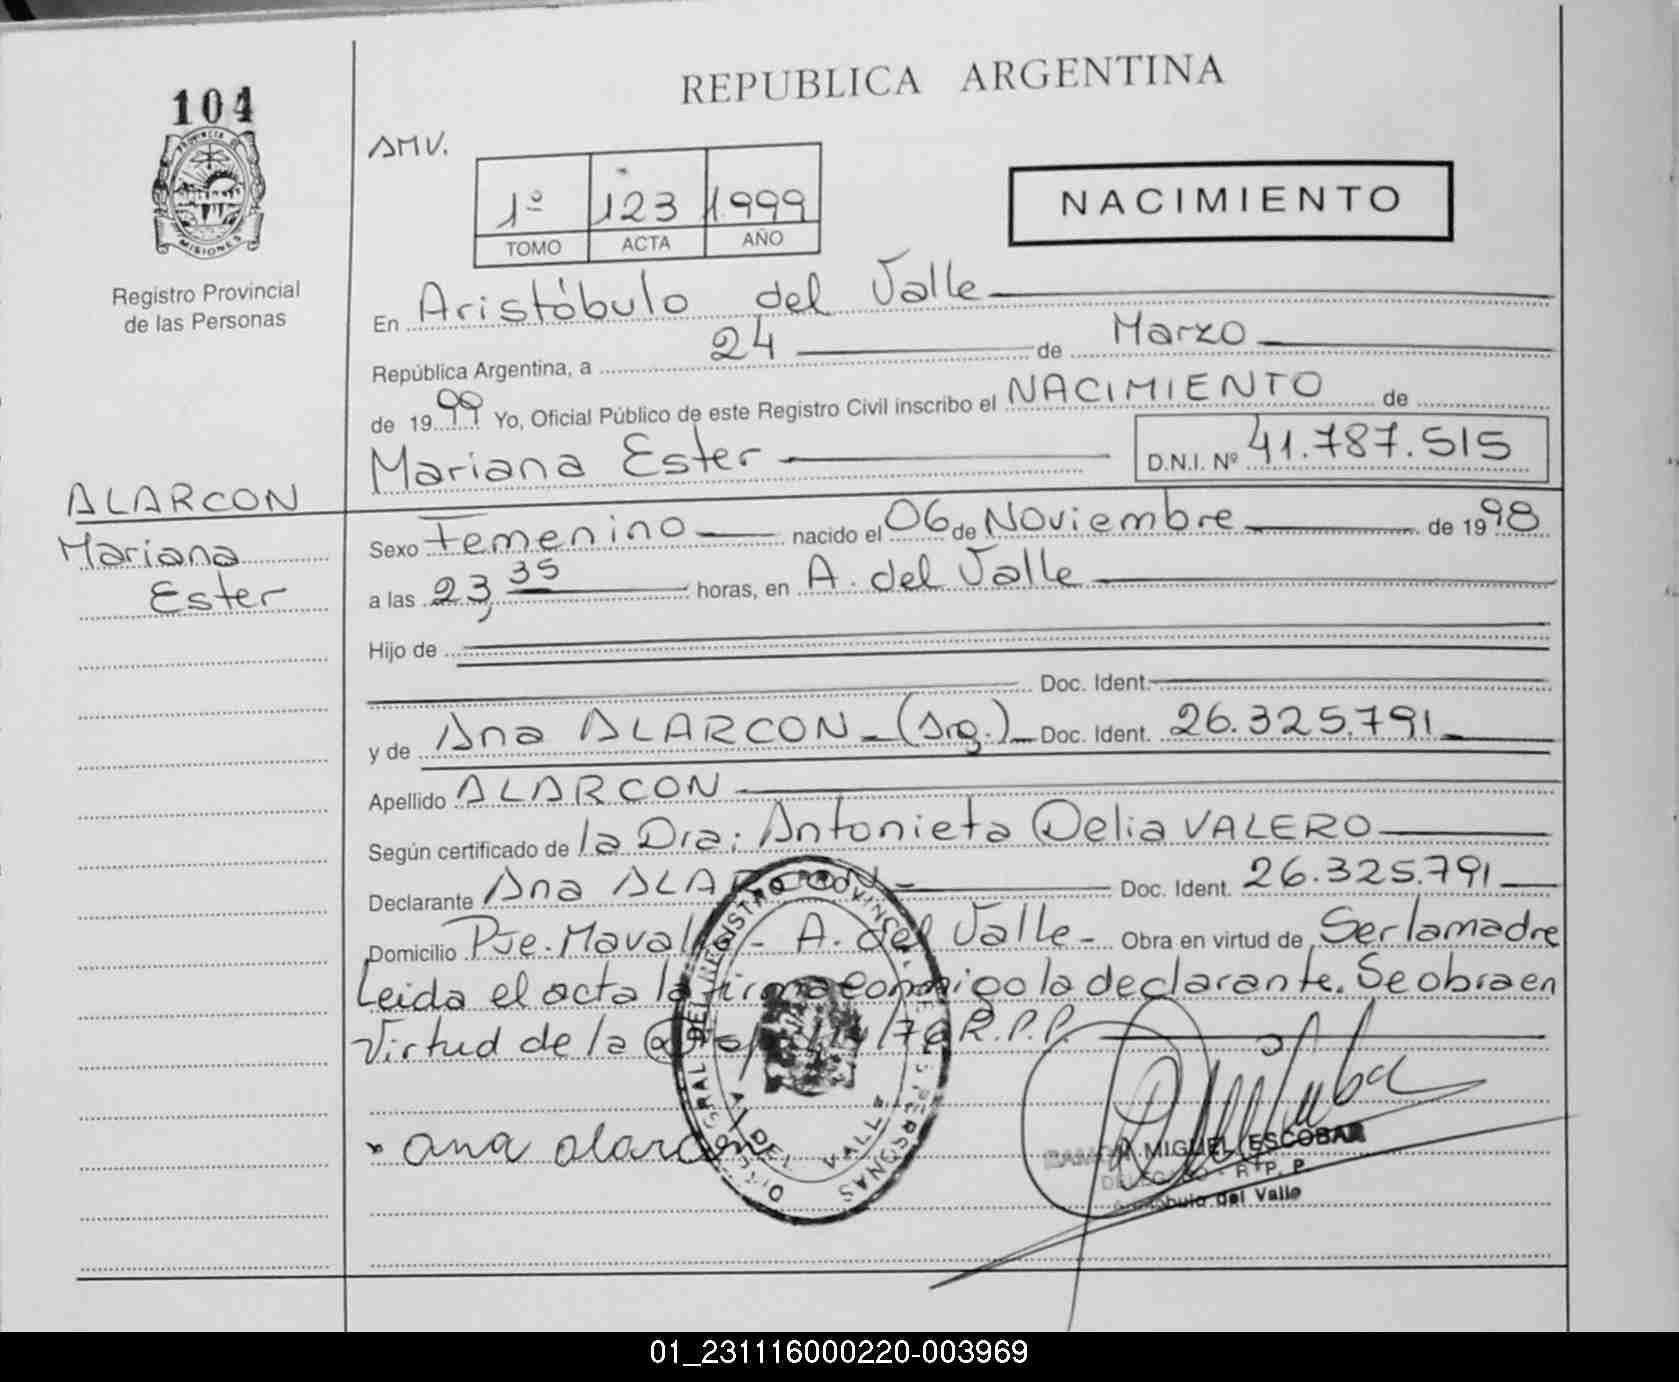 REPUBLICA ARGENTINA
104
PROVINCIA DE
MISIONES
Registro Provincial
de las Personas
AMV.
1º 123 1999
TOMO ACTA AÑO
NACIMIENTO
En Aristóbulo del Valle
República Argentina, a 24 de Marzo
de 1999 Yo, Oficial Público de este Registro Civil inscribo el NACIMIENTO de
Mariana Ester D.N.I. Nº 41.787.515
ALARCON
Mariana
Ester
Sexo Femenino nacido el 06 de Noviembre de 1998
a las 23,35 horas, en A. del Valle
Hijo de
Doc. Ident.
y de Ana ALARCON - (Arg.) - Doc. Ident. 26.325.791
Apellido ALARCON
Según certificado de la Dra; Antonieta Delia VALERO
Declarante Ana ALARCON - Doc. Ident. 26.325.791
Domicilio Pje. - A. del Valle - Obra en virtud de Ser la madre
Leida el acta la firma conmigo la declarante. Se obra en
Virtud de la /76 R.P.P.
ana alarcon
REGISTRO PROVINCIAL DE LAS PERSONAS
A. DEL VALLE
MIGUEL ESCOBAR
DELEGADO - R. P. P
Aristóbulo del Valle
01_231116000220-003969